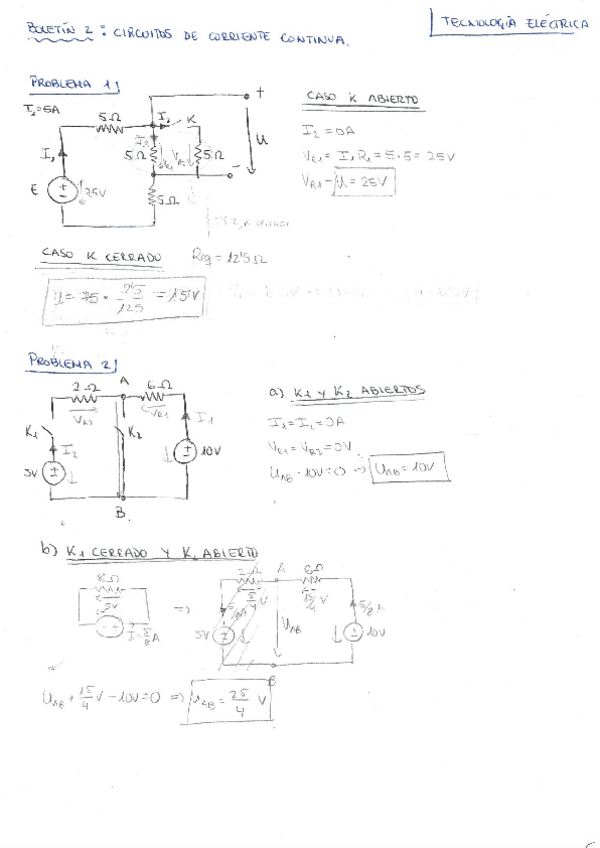 BOLETÍN 2: CIRCUITOS DE CORRIENTE CONTINUA.
TECNOLOGÍA ELÉCTRICA
PROBLEMA 1)
I₁=5A
5Ω
I₂
K
+
I₁
5Ω
5Ω
U
-
E
25V
5Ω
CASO K ABIERTO
I₂ = 0A
V_R1 = I₁R₁ = 5·5 = 25V
V_R1 - U = 25V
CASO K CERRADO
Req = 12'5Ω
= 15V
PROBLEMA 2)
2Ω
A
6Ω
V_R2
V_R1
I₁
K₁
K₂
I₂
5V
10V
B
a) K1 Y K2 ABIERTOS
I₁ = I₂ = 0A
V_R1 = V_R2 = 0V
U_AB - 10V = 0 => U_AB = 10V
b) K1 CERRADO Y K. ABIERTO
8Ω
5V
I = 5/8 A
=>
2Ω
A
6Ω
5/4 V
15/4 V
5V
U_AB
10V
B
U_AB + 15/4 V - 10V = 0 => U_AB = 25/4 V